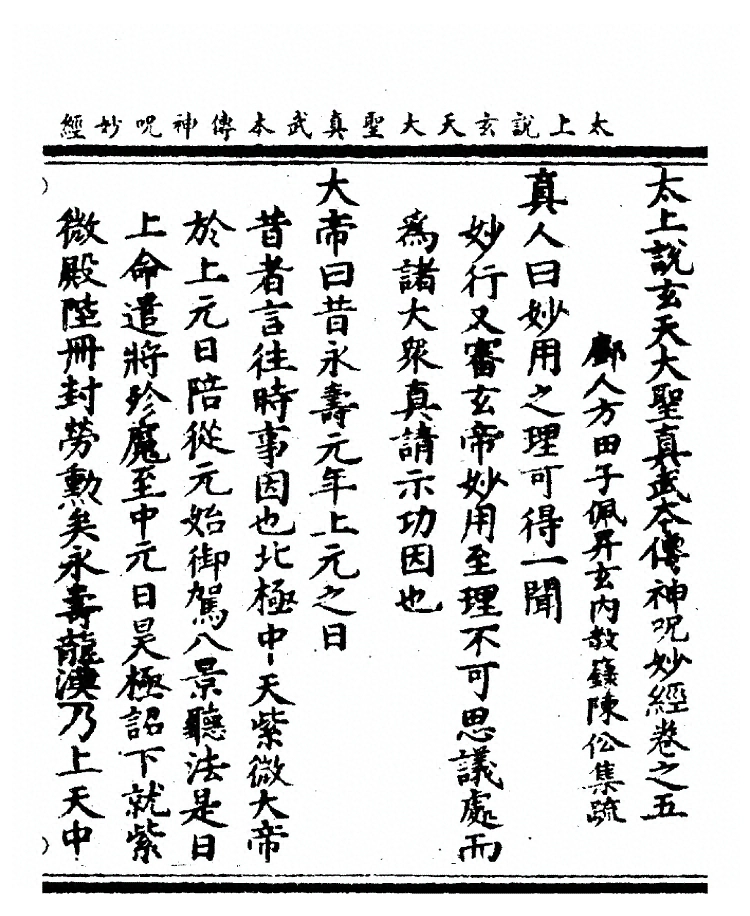 太上說玄天大聖真武本傳神呪妙經
太上說玄天大聖真武本傳神呪妙經卷之五
鄮人方田子佩昇玄內教籙陳伀集疏
真人曰妙用之理可得一聞
妙行又審玄帝妙用至理不可思議處而
為諸大眾真請示功因也
大帝曰昔永壽元年上元之日
昔者言往時事因也北極中天紫微大帝
於上元日陪從元始御駕八景聽法是日
上命遣將珍魔至中元日昊極詔下就紫
微殿陞冊封勞勳矣永壽龍漢乃上天中